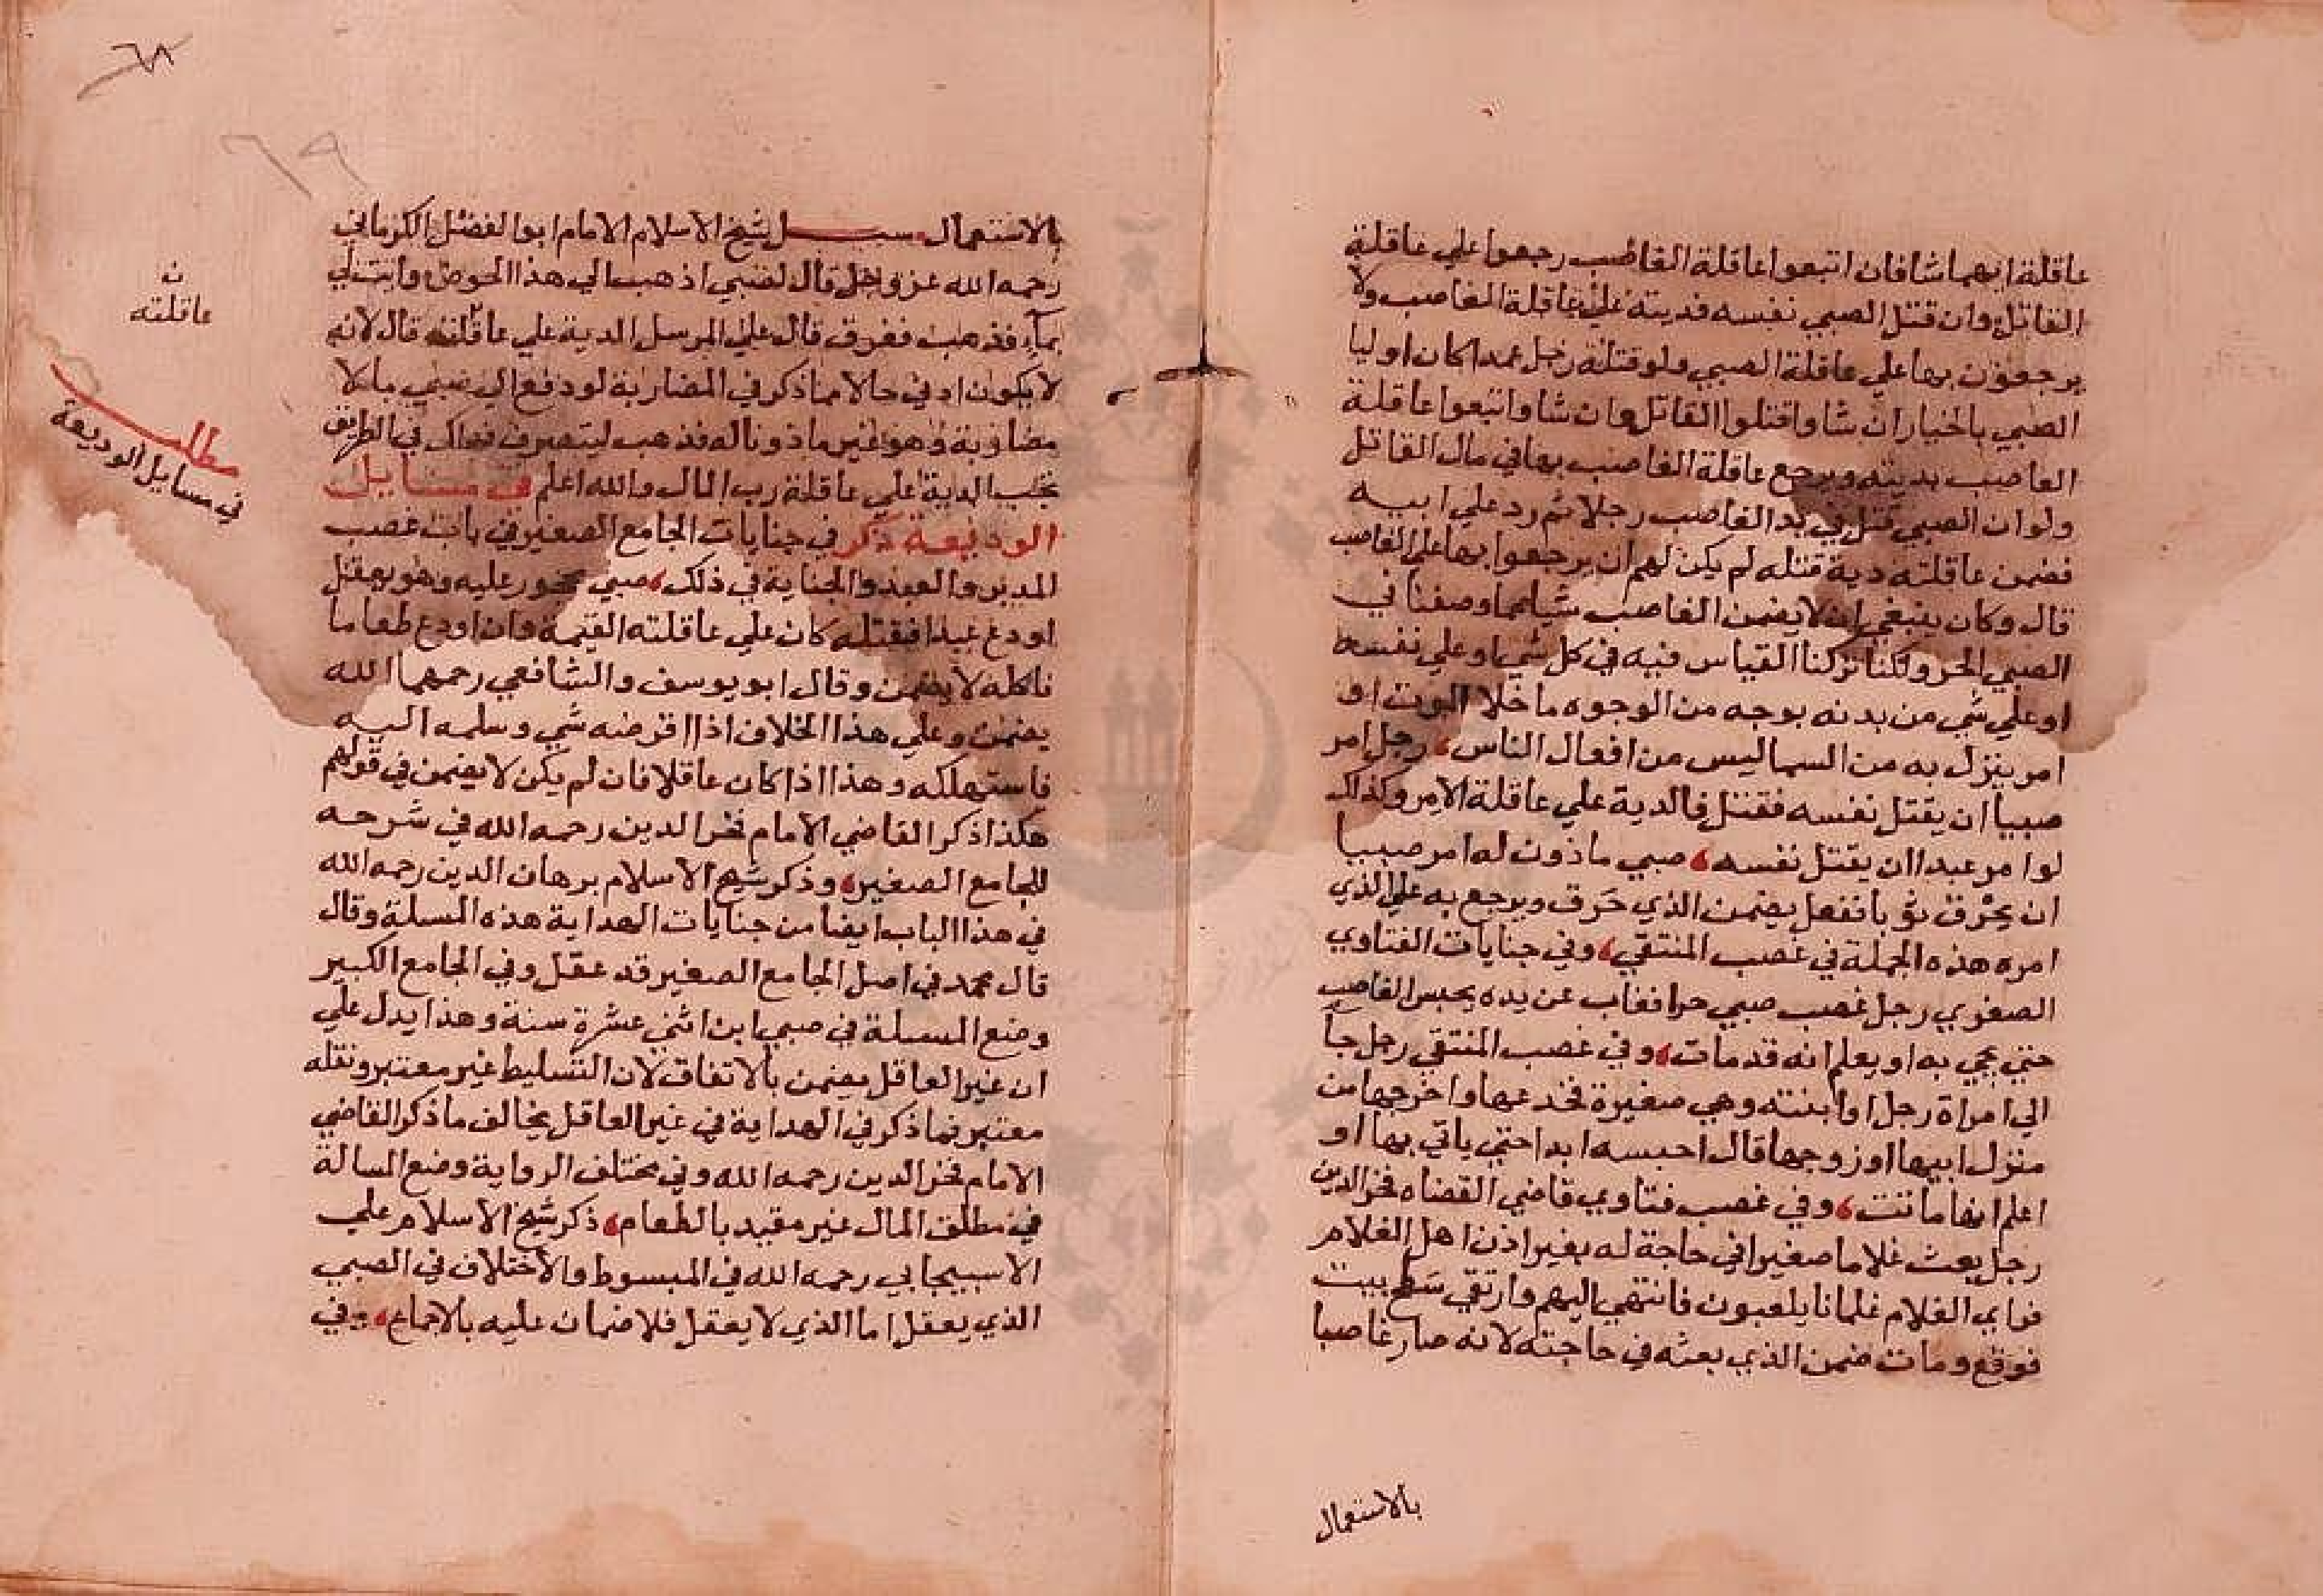 عاقلة ايهما شا فان اتبعوا عاقلة الغاصب رجعوا علي عاقلة
القاتل وان قتل الصبي نفسه فديته علي عاقلة الغاصب ولا
يرجعون بها علي عاقلة الصبي ولو قتله رجل عمدا كان اوليا
الصبي بالخيار ان شاوا قتلوا القاتل وان شاوا اتبعوا عاقلة
الغاصب بديته ويرجع عاقلة الغاصب بها في مال القاتل
ولو ان الصبي قتل في يد الغاصب رجلا ثم رد علي ابيه
فضمن عاقلته دية قتله لم يكن لهم ان يرجعوا بها علي الغاصب
قال وكان ينبغي ان لا يضمن الغاصب شيا مما وصفنا في
الصبي الحر ولكنا تركنا القياس فيه في كل شي او علي نفسه
او علي شي من بدنه بوجه من الوجوه ما خلا الموت او
امر ينزل به من السما ليس من افعال الناس رجل امر
صبيا ان يقتل نفسه فقتل فالدية علي عاقلة الامر وكذلك
لو امر عبدا ان يقتل نفسه صبي ماذون له امر صبيا
ان يحرق ثوبا ففعل يضمن الذي حرق ويرجع به علي الذي
امره هذه الجملة في غصب المنتقي وفي جنايات الفتاوي
الصغري رجل غصب صبي حرا فغاب عن يده يحبس الغاصب
حتي يجي به او يعلم انه قد مات وفي غصب المنتقي رجل جا
الي امراة رجل او ابنته وهي صغيرة فخدعها واخرجها من
منزل ابيها او زوجها قال احبسه ابدا حتي ياتي بها او
اعلم انها ماتت وفي غصب فتاوي قاضي القضاه فخر الدين
رجل بعث غلاما صغيرا في حاجة له بغير اذن اهل الغلام
فراي الغلام غلمانا يلعبون فانتهي اليهم وارتقي سطح بيت
فوقع ومات ضمن الذي بعثه في حاجته لانه صار غاصبا
بالاستعمال
٦٨
٦٩
بالاستعمال سيل شيخ الاسلام الامام ابو الفضل الكرماني
رحمه الله عن رجل قال لصبي اذهب الي هذا الحوض وايت لي
بماء فذهب فغرق قال علي المرسل الدية علي عاقلته قال لانه
لا يكون ادني حالا مما ذكر في المضاربة لو دفع الي صبي مالا
مضاربة وهو غير ماذونا له فذهب ليتصرف فهلك في الطريق
تجب الدية علي عاقلة رب المال والله اعلم في مسايل
الوديعة ذكر في جنايات الجامع الصغير في باب غصب
المدبر والعبد والجناية في ذلك صبي محجور عليه وهو يعقل
اودع عبدا فقتله كان علي عاقلته القيمة وان اودع طعاما
فاكله لا يضمن وقال ابو يوسف والشافعي رحمهما الله
يضمن وعلي هذا الخلاف اذا اقرضه شي وسلمه اليه
فاستهلكه وهذا اذا كان عاقلا فان لم يكن لا يضمن في قولهم
هكذا ذكر القاضي الامام فخر الدين رحمه الله في شرحه
للجامع الصغير وذكر شيخ الاسلام برهان الدين رحمه الله
في هذا الباب ايضا من جنايات الهداية هذه المسلة وقال
قال محمد في اصل الجامع الصغير قد عقل وفي الجامع الكبير
وضع المسيلة في صبي ابن اثني عشرة سنة وهذا يدل علي
ان غير العاقل يضمن بالاتفاق لان التسليط غير معتبر وفعله
معتبر فما ذكر في الهداية في غير العاقل يخالف ما ذكر القاضي
الامام فخر الدين رحمه الله وفي مختلف الرواية وضع المسالة
في مطلق المال غير مقيد بالطعام ذكر شيخ الاسلام علي
الاسبيجابي رحمه الله في المبسوط والاختلاف في الصبي
الذي يعقل اما الذي لا يعقل فلا ضمان عليه بالاجماع وفي
ن
عاقلته
مطلب
في مسايل الوديعة